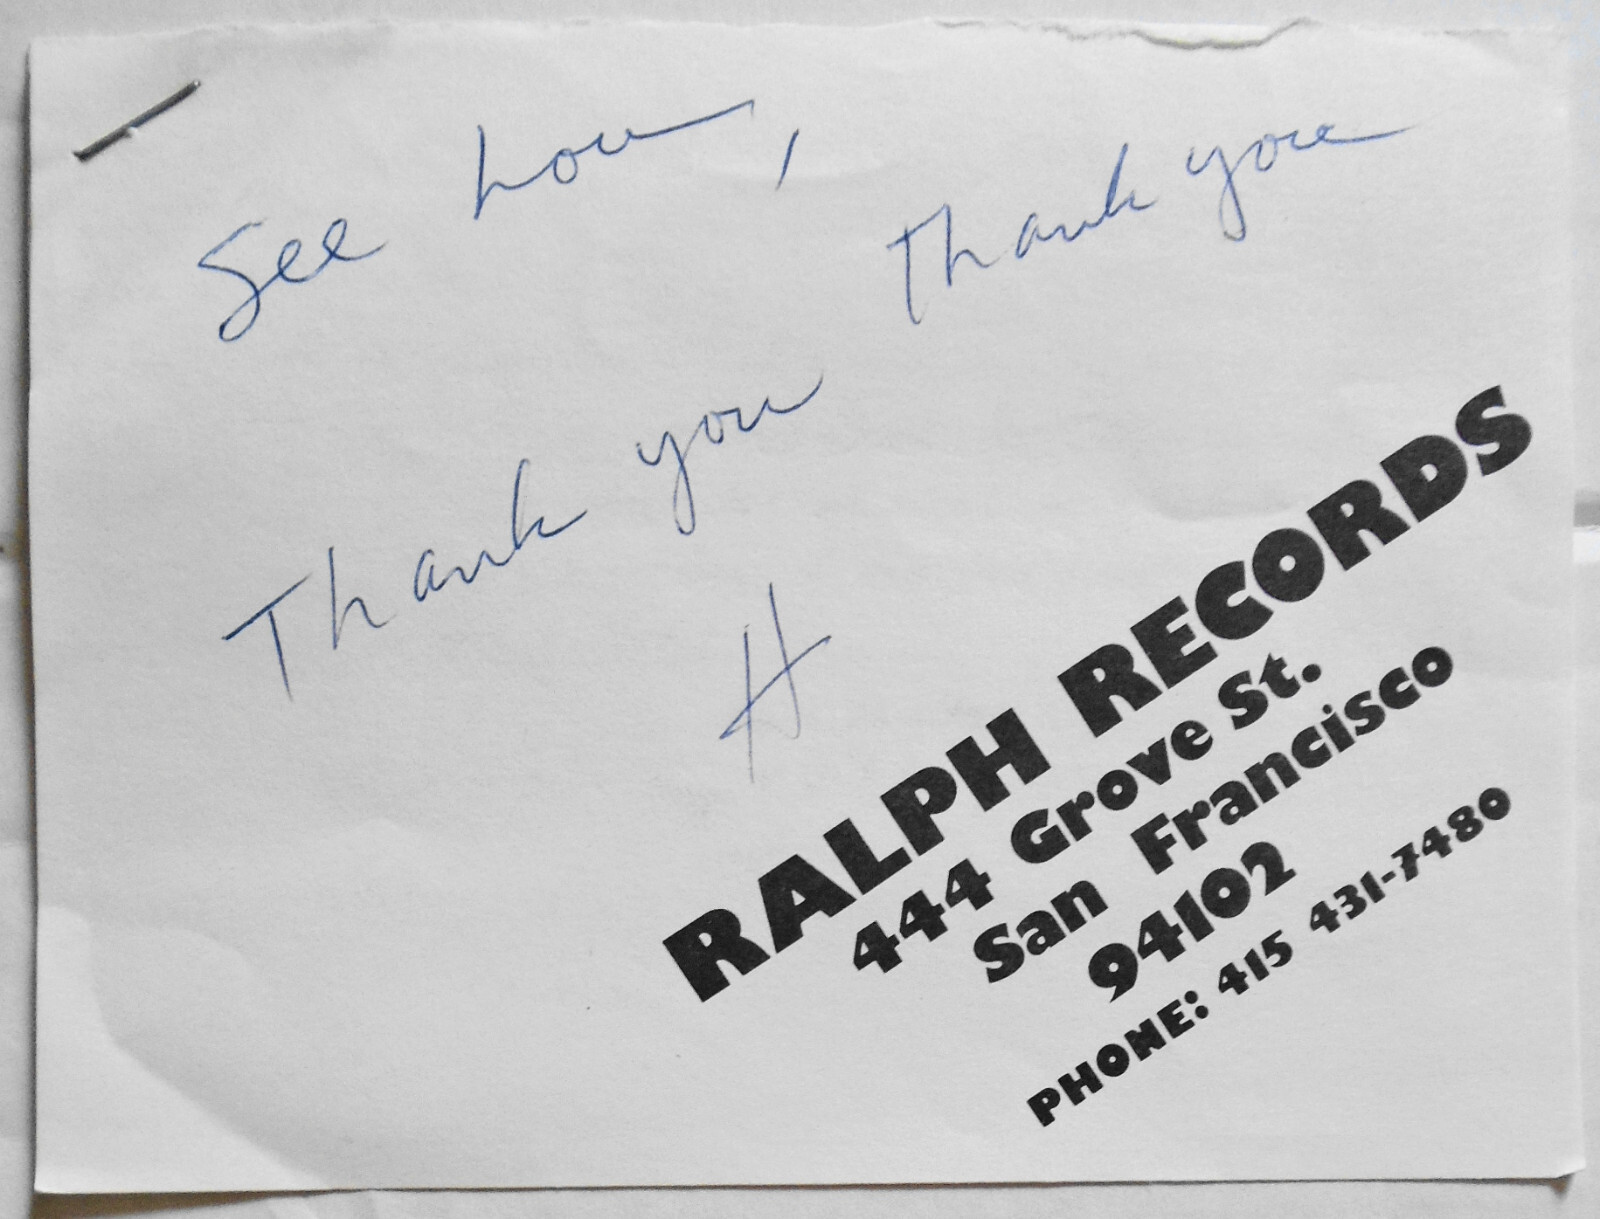 See
Thank you
Thank you
H
RALPH RECORDS
444 Grove St.
San Francisco
94102
PHONE: 415 431-7480